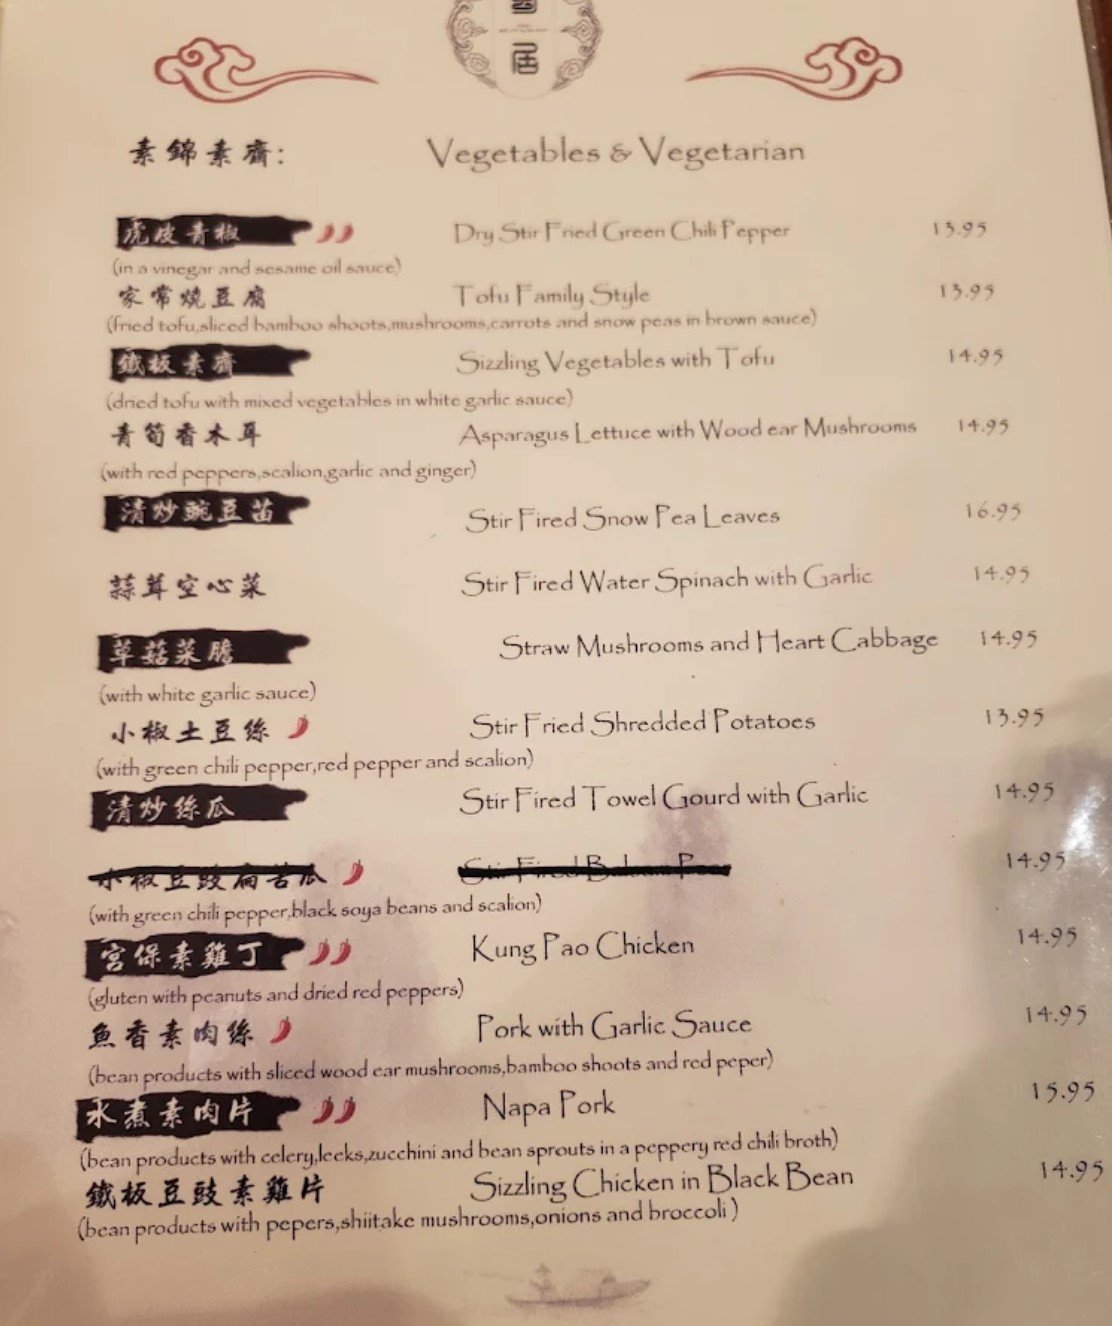 居
素錦素齋: Vegetables & Vegetarian
虎皮青椒 Dry Stir Fried Green Chili Pepper 13.95
(in a vinegar and sesame oil sauce)
家常燒豆腐 Tofu Family Style 13.95
(fried tofu,sliced bamboo shoots,mushrooms,carrots and snow peas in brown sauce)
鐵板素齋 Sizzling Vegetables with Tofu 14.95
(dried tofu with mixed vegetables in white garlic sauce)
青筍香木耳 Asparagus Lettuce with Wood ear Mushrooms 14.95
(with red peppers,scalion,garlic and ginger)
清炒豌豆苗 Stir Fired Snow Pea Leaves 16.95
蒜茸空心菜 Stir Fired Water Spinach with Garlic 14.95
草菇菜膽 Straw Mushrooms and Heart Cabbage 14.95
(with white garlic sauce)
小椒土豆絲 Stir Fried Shredded Potatoes 13.95
(with green chili pepper,red pepper and scalion)
清炒絲瓜 Stir Fired Towel Gourd with Garlic 14.95
小椒豆豉煸苦瓜 Stir Fired Balsam Pear 14.95
(with green chili pepper,black soya beans and scalion)
宮保素雞丁 Kung Pao Chicken 14.95
(gluten with peanuts and dried red peppers)
魚香素肉絲 Pork with Garlic Sauce 14.95
(bean products with sliced wood ear mushrooms,bamboo shoots and red peper)
水煮素肉片 Napa Pork 15.95
(bean products with celery,leeks,zucchini and bean sprouts in a peppery red chili broth)
鐵板豆豉素雞片 Sizzling Chicken in Black Bean 14.95
(bean products with pepers,shiitake mushrooms,onions and broccoli )